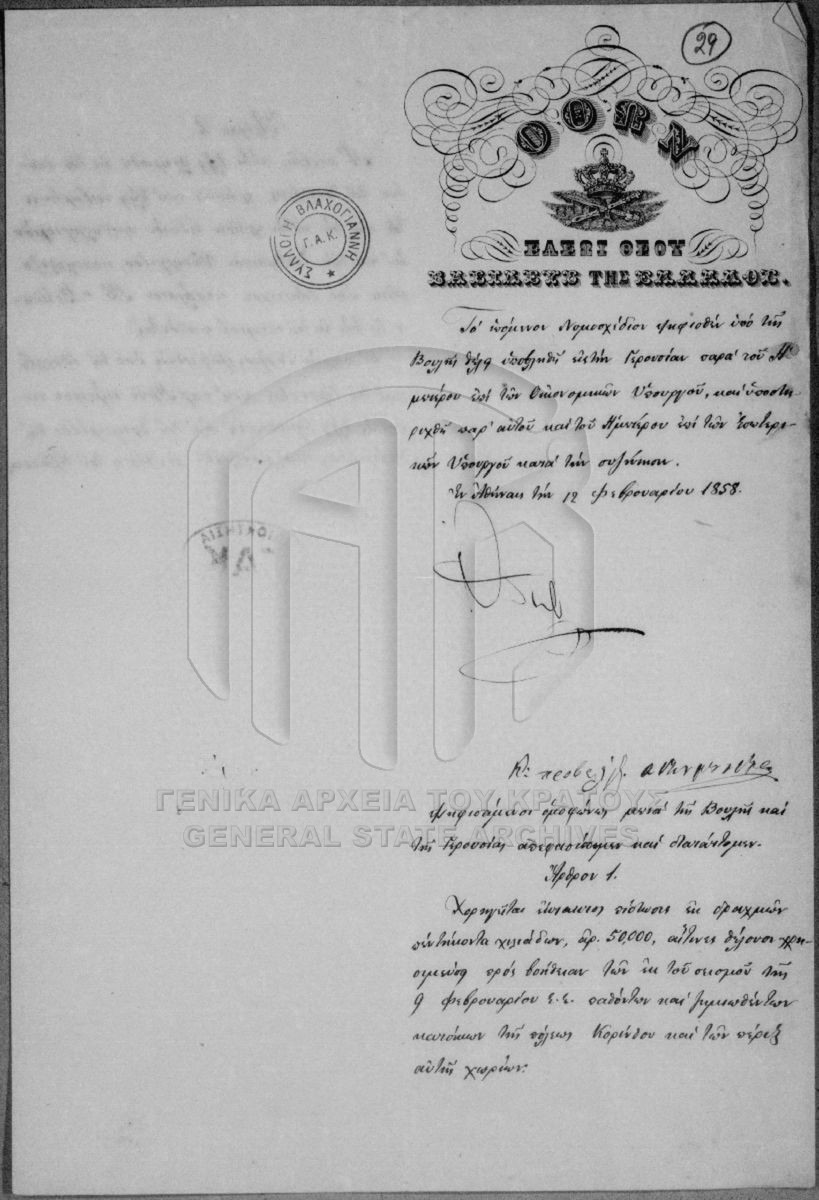 29
ΟΘΩΝ
ΕΛΕΩΙ ΘΕΟΥ
ΒΑΣΙΛΕΥΣ ΤΗΣ ΕΛΛΑΔΟΣ.
ΣΥΛΛΟΓΗ ΒΛΑΧΟΓΙΑΝΝΗ
Γ.Α.Κ.
Τό ἑπόμενον Νομοσχέδιον ψηφισθέν ὑπό τῆς
Βουλῆς θέλει ὑποβληθῆ εἰς τήν Γερουσίαν παρά τοῦ Ἡ
μετέρου ἐπί τῶν Οἰκονομικῶν Ὑπουργοῦ, καί ὑποστη
ριχθῆ παρ' αὐτοῦ καί τοῦ Ἡμετέρου ἐπί τῶν Ἐσωτερι
κῶν Ὑπουργοῦ κατά τήν συζήτησιν.
Ἐν Ἀθήναις τήν 12 Φεβρουαρίου 1858.
Ὄθων
ΓΕΝΙΚΑ ΑΡΧΕΙΑ ΤΟΥ ΚΡΑΤΟΥΣ
GENERAL STATE ARCHIVES
Ψηφισάμενοι ὁμοφώνως μετά τῆς Βουλῆς καί
τῆς Γερουσίας ἀπεφασίσαμεν καί διατάττομεν.
Ἄρθρον 1.
Χορηγεῖται ἔκτακτος πίστωσις ἐκ δραχμῶν
πεντήκοντα χιλιάδων, ἀρ. 50,000, αἵτινες θέλουσι χρη
σιμεύσῃ πρός βοήθειαν τῶν ἐκ τοῦ σεισμοῦ τῆς
9 Φεβρουαρίου ἐ.ἔ. παθόντων καί ζημιωθέντων
κατοίκων τῆς πόλεως Κορίνθου καί τῶν πέριξ
αὐτῆς χωρίων.